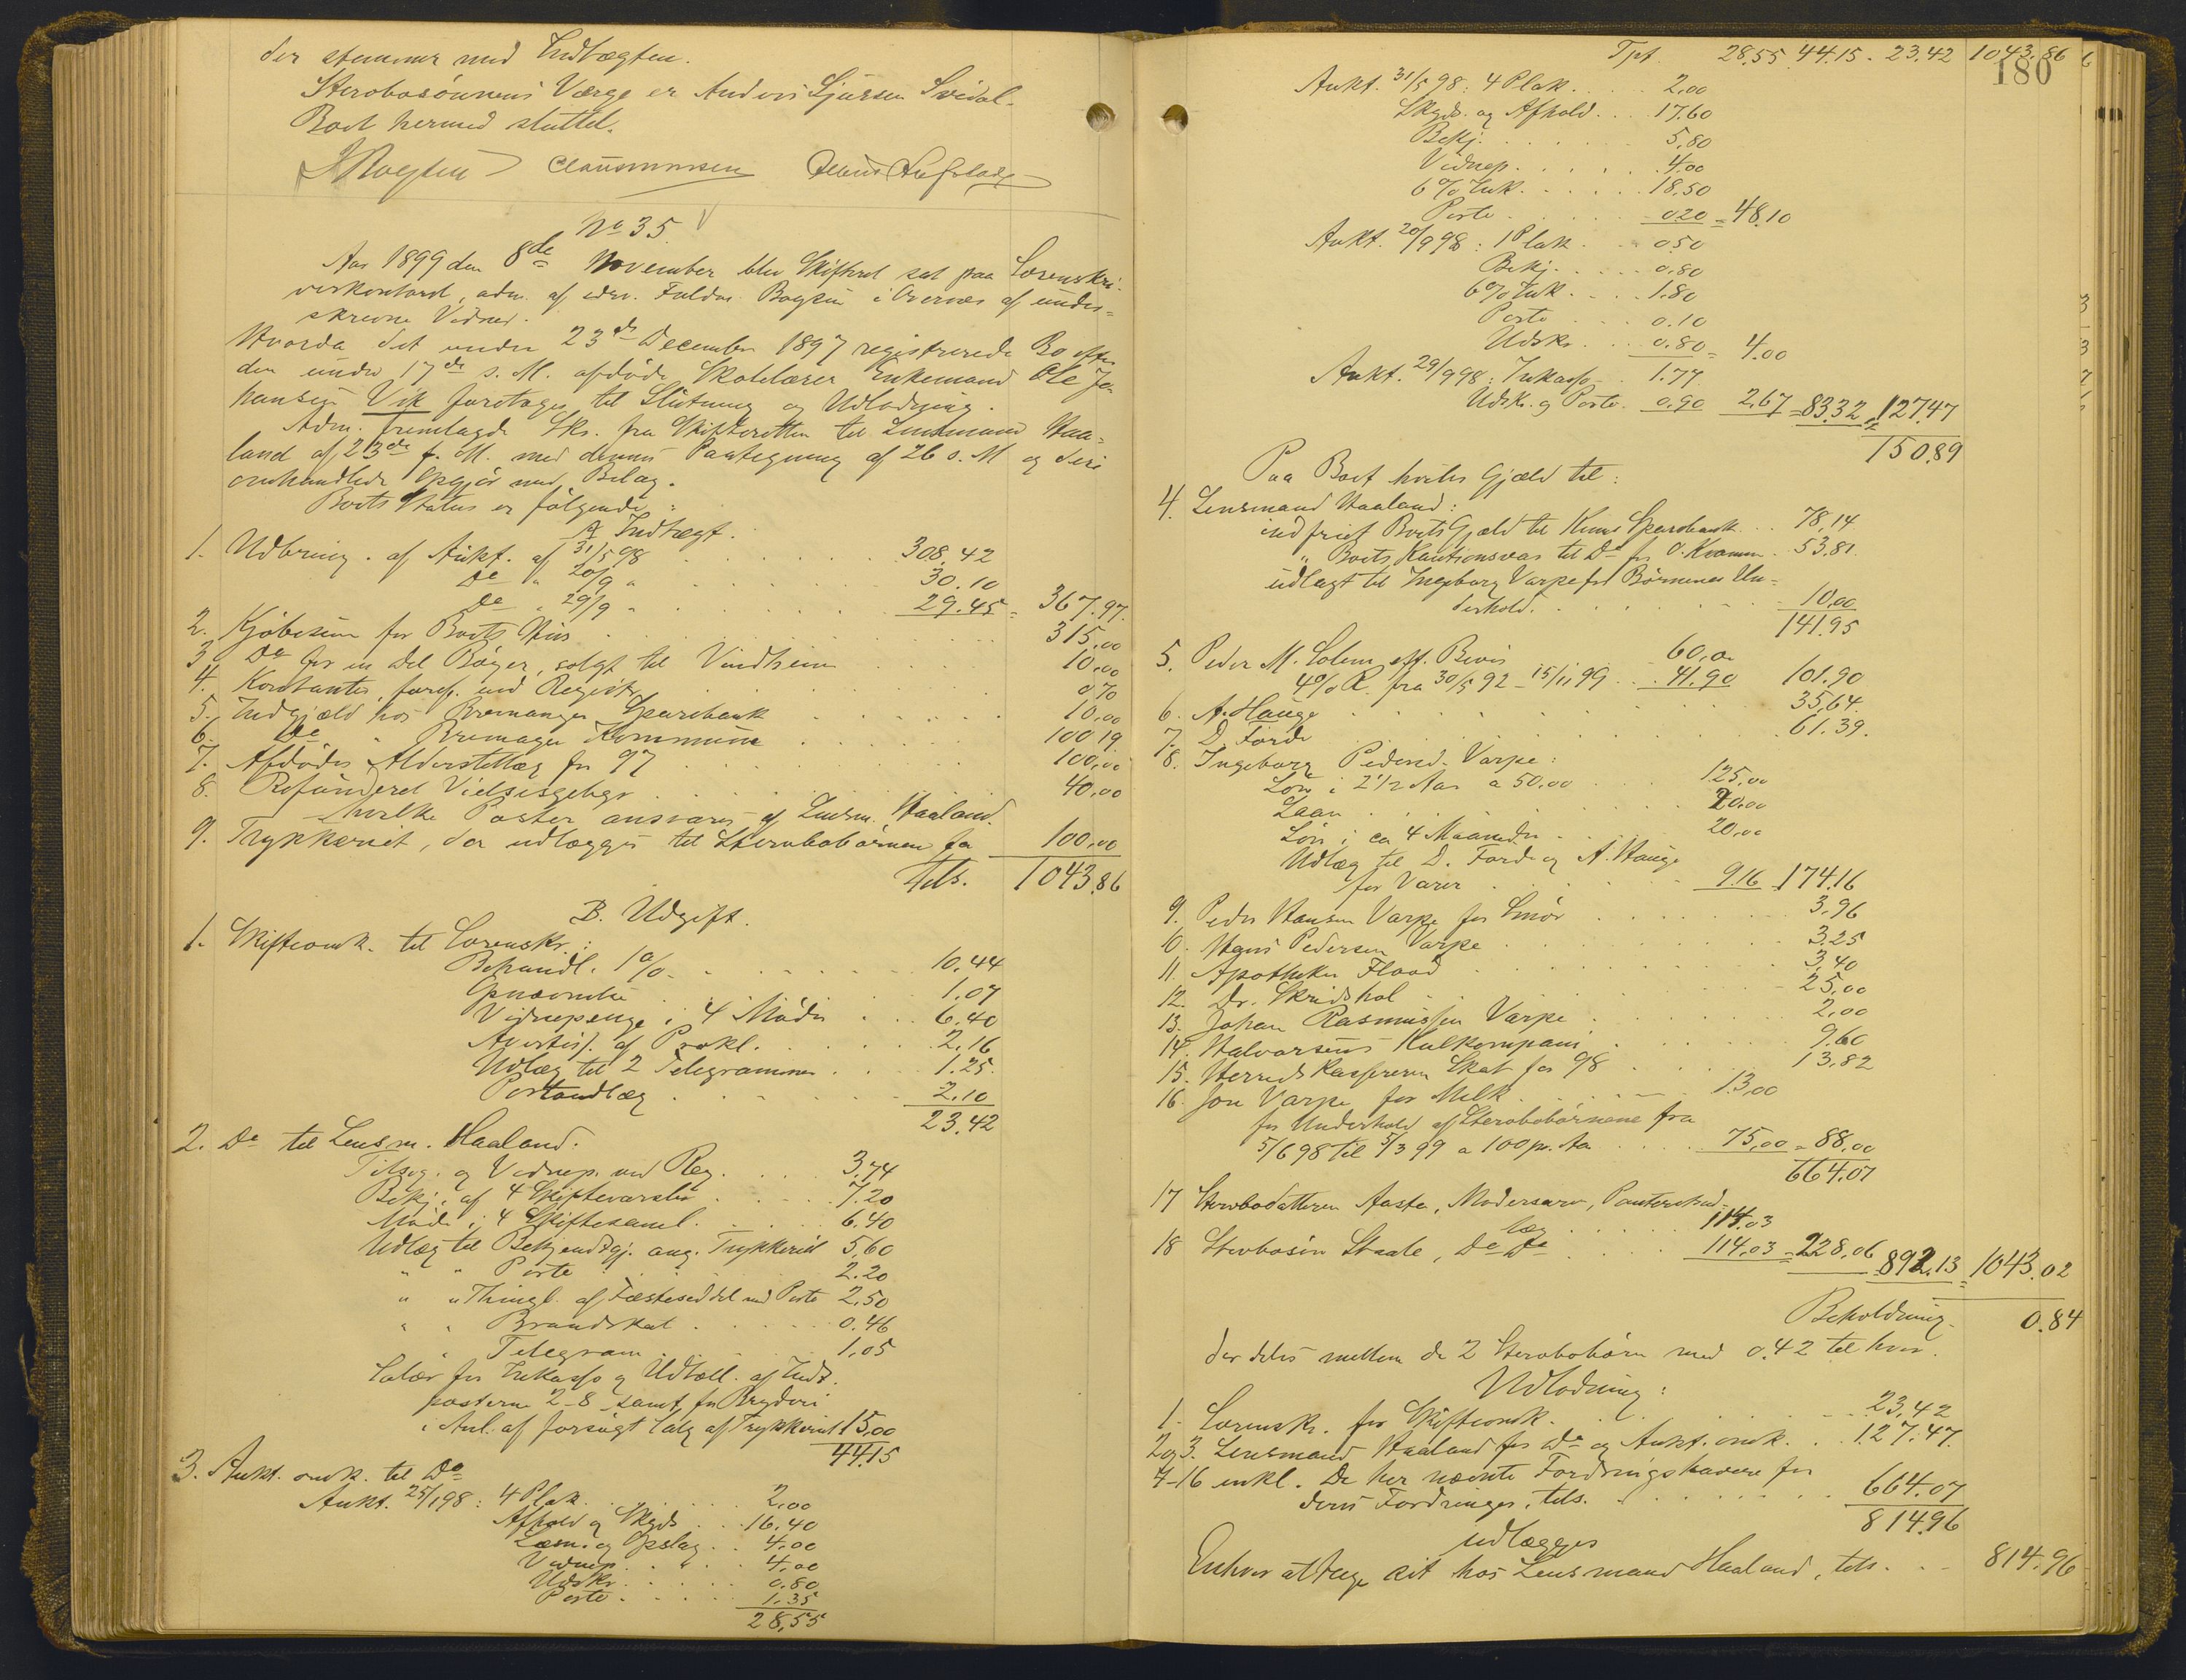 der stemmer med Indtægten.
Sterbosønnens Værge er Anders Sjursen Svidal.
Boet hermed sluttet.
No 35.
Aar 1899 den 8de November blev Skifteret sat paa Sorenskri-
verkontoret, adm. af edsv. Fuldm. Bøgsen i Overvær af under-
skrevne Vidner.
Hvorda det under 23de December 1897 registrerede Bo efter
den under 17de s. M. afdøde Skolelærer Enkemand Ole Jo-
hansen Vik foretages til Slutning og Udlodning.
Adm. fremlagde Skr. fra Skifteretten til Lensmand Haa-
land af 23de f. M. med dennes Paategning af 26 s. M. og deri
omhandlede Opgjør med Bilag.
Boets Status er følgende:
A Indtægt.
1. Udbring. af Aukt. af 31/5 98 308,42
Do " 20/9 " 30.10
Do " 29/9 " 29.45 = 367.97.
2. Kjøbesum for Boets Hus 315,00
3. Do for en Del Bøger, solgt til Vindheim 10,00
4. Kontanter, foref. ved Registr. 0,70
5. Indgjæld hos Bremanger Sparebank 10,00
6. Do " Bremanger Kommune 100 19
7. Afdødes Alderstillæg for 97 100,00
8. Refunderet 40,00
hvilke Poster ansvares af Lensm. Haaland.
9. Trykkeriet, der udlægges til Sterbobørnene for 100,00
Tils. 1043.86
B. Udgift.
1. Skifteomk. til Sorenskr.:
Behandl. 1% 10,44
Opnævnelse 1.07
Vidnepenge i 4 Møder 6,40
Avertiss. af Prokl. 2,16
Udlæg til 2 Telegrammer 1.25.
Portoudlæg 2,10
23.42
2. Do til Lensm. Haaland:
Tilsig. og Vidnep. ved Reg. 3,74
Bekj. af 4 Skiftevarsler 7.20
Møde i 4 Skiftesaml. 6,40
Udlæg til Bekjendtgj. ang. Trykkeriet 5,60
" " Porto 2.20
" " Thingl. af Fæsteseddel med Porto 2,50
" " Brandskat 0.46
" Telegram 1,05
Salær for Inkasso og Udbetl. af Indt.
posterne 2-8 samt for Bryderi
i Anl. af forsøgt Salg af Trykkeriet 15,00
44.15
3. Aukt. omk. til Do
Aukt. 25/1 98: 4 Plak. 2,00
Afhold og Skyds 16,40
Læsn. og Opslag 4,00
Vidnep. 4,00
Udskr. 0.80
Porto 1.35
28,55
180
Tpt. 28.55 44.15. 23.42 1043.86
Aukt. 31/5 98: 4 Plak. 2,00
Skyds. og Afhold. 17.60
Bekj. 5,80
Vidnep. 4,00
6% Ink. 18,50
Porto 0.20 = 48.10
Aukt. 20/9 98: 1 Plak. 0.50
Bekj. 0.80
6% Ink. 1.80
Porto 0.10
Udskr. 0.80 = 4.00
Aukt. 29/9 98: Inkasso 1.77
Udskr. og Porto. 0.90 2,67 = 83.32 127.47
150.89
Paa Boet hviler Gjæld til:
4. Lensmand Haaland:
indfriet Boets Gjæld til Kinns Sparebank 78,14
" Boets Kautionsvar til Do for O. Kvamen 53.81.
udlagt til Ingeborg Varpe for Børnenes Un-
derhold. 10,00
141.95
5. Peder M. Solem eft. Bevis 60,00
4% R. fra 30/5 92 - 15/11 99 41.90 101.90
6. A. Hauge 35,64.
7. D. Førde 61.39.
8. Ingeborg Pedersd. Varpe:
Løn i 2 1/2 Aar a 50,00 125,00
Laan 20,00
Løn i ca 4 Maaneder 20,00
Udlæg til D. Førde og A. Hauge
for Varer 9.16 174.16
9. Peder Hansen Varpe for Smør 3,96
10. Hans Pedersen Varpe 3,25
11. Apotheker Flood 3,40
12. Dr. Skridshol 25,00
13. Johan Rasmussen Varpe 2,00
14. Halvorsens Kulkompani 9.60
15. Herredskassereren Skat for 98 13,82
16. Jon Varpe for Melk 13,00
for Underhold af Sterbobørnene fra
5/6 98 til 5/3 99 a 100 pr. Aar 75,00 = 88,00
664.07
17 Sterbodatteren Aasta, Modersarv, Panterettsud-
læg 114.03
18 Sterbosøn Staale, Do Do 114,03 = 228,06 892.13 1043.02
Beholdning 0.84
der deles mellem de 2 Sterbobørn med 0.42 til hver.
Udlodning:
1. Sorenskr. for Skifteomk. 23,42
2 og 3. Lensmand Haaland for Do og Aukt. omk. 127.47.
4-16 inkl. De her nævnte Fordringshavere for
deres Fordringer, tils. 664.07
814.96
udlægges
Enhver at tage sit hos Lensmand Haaland, tils. 814.96